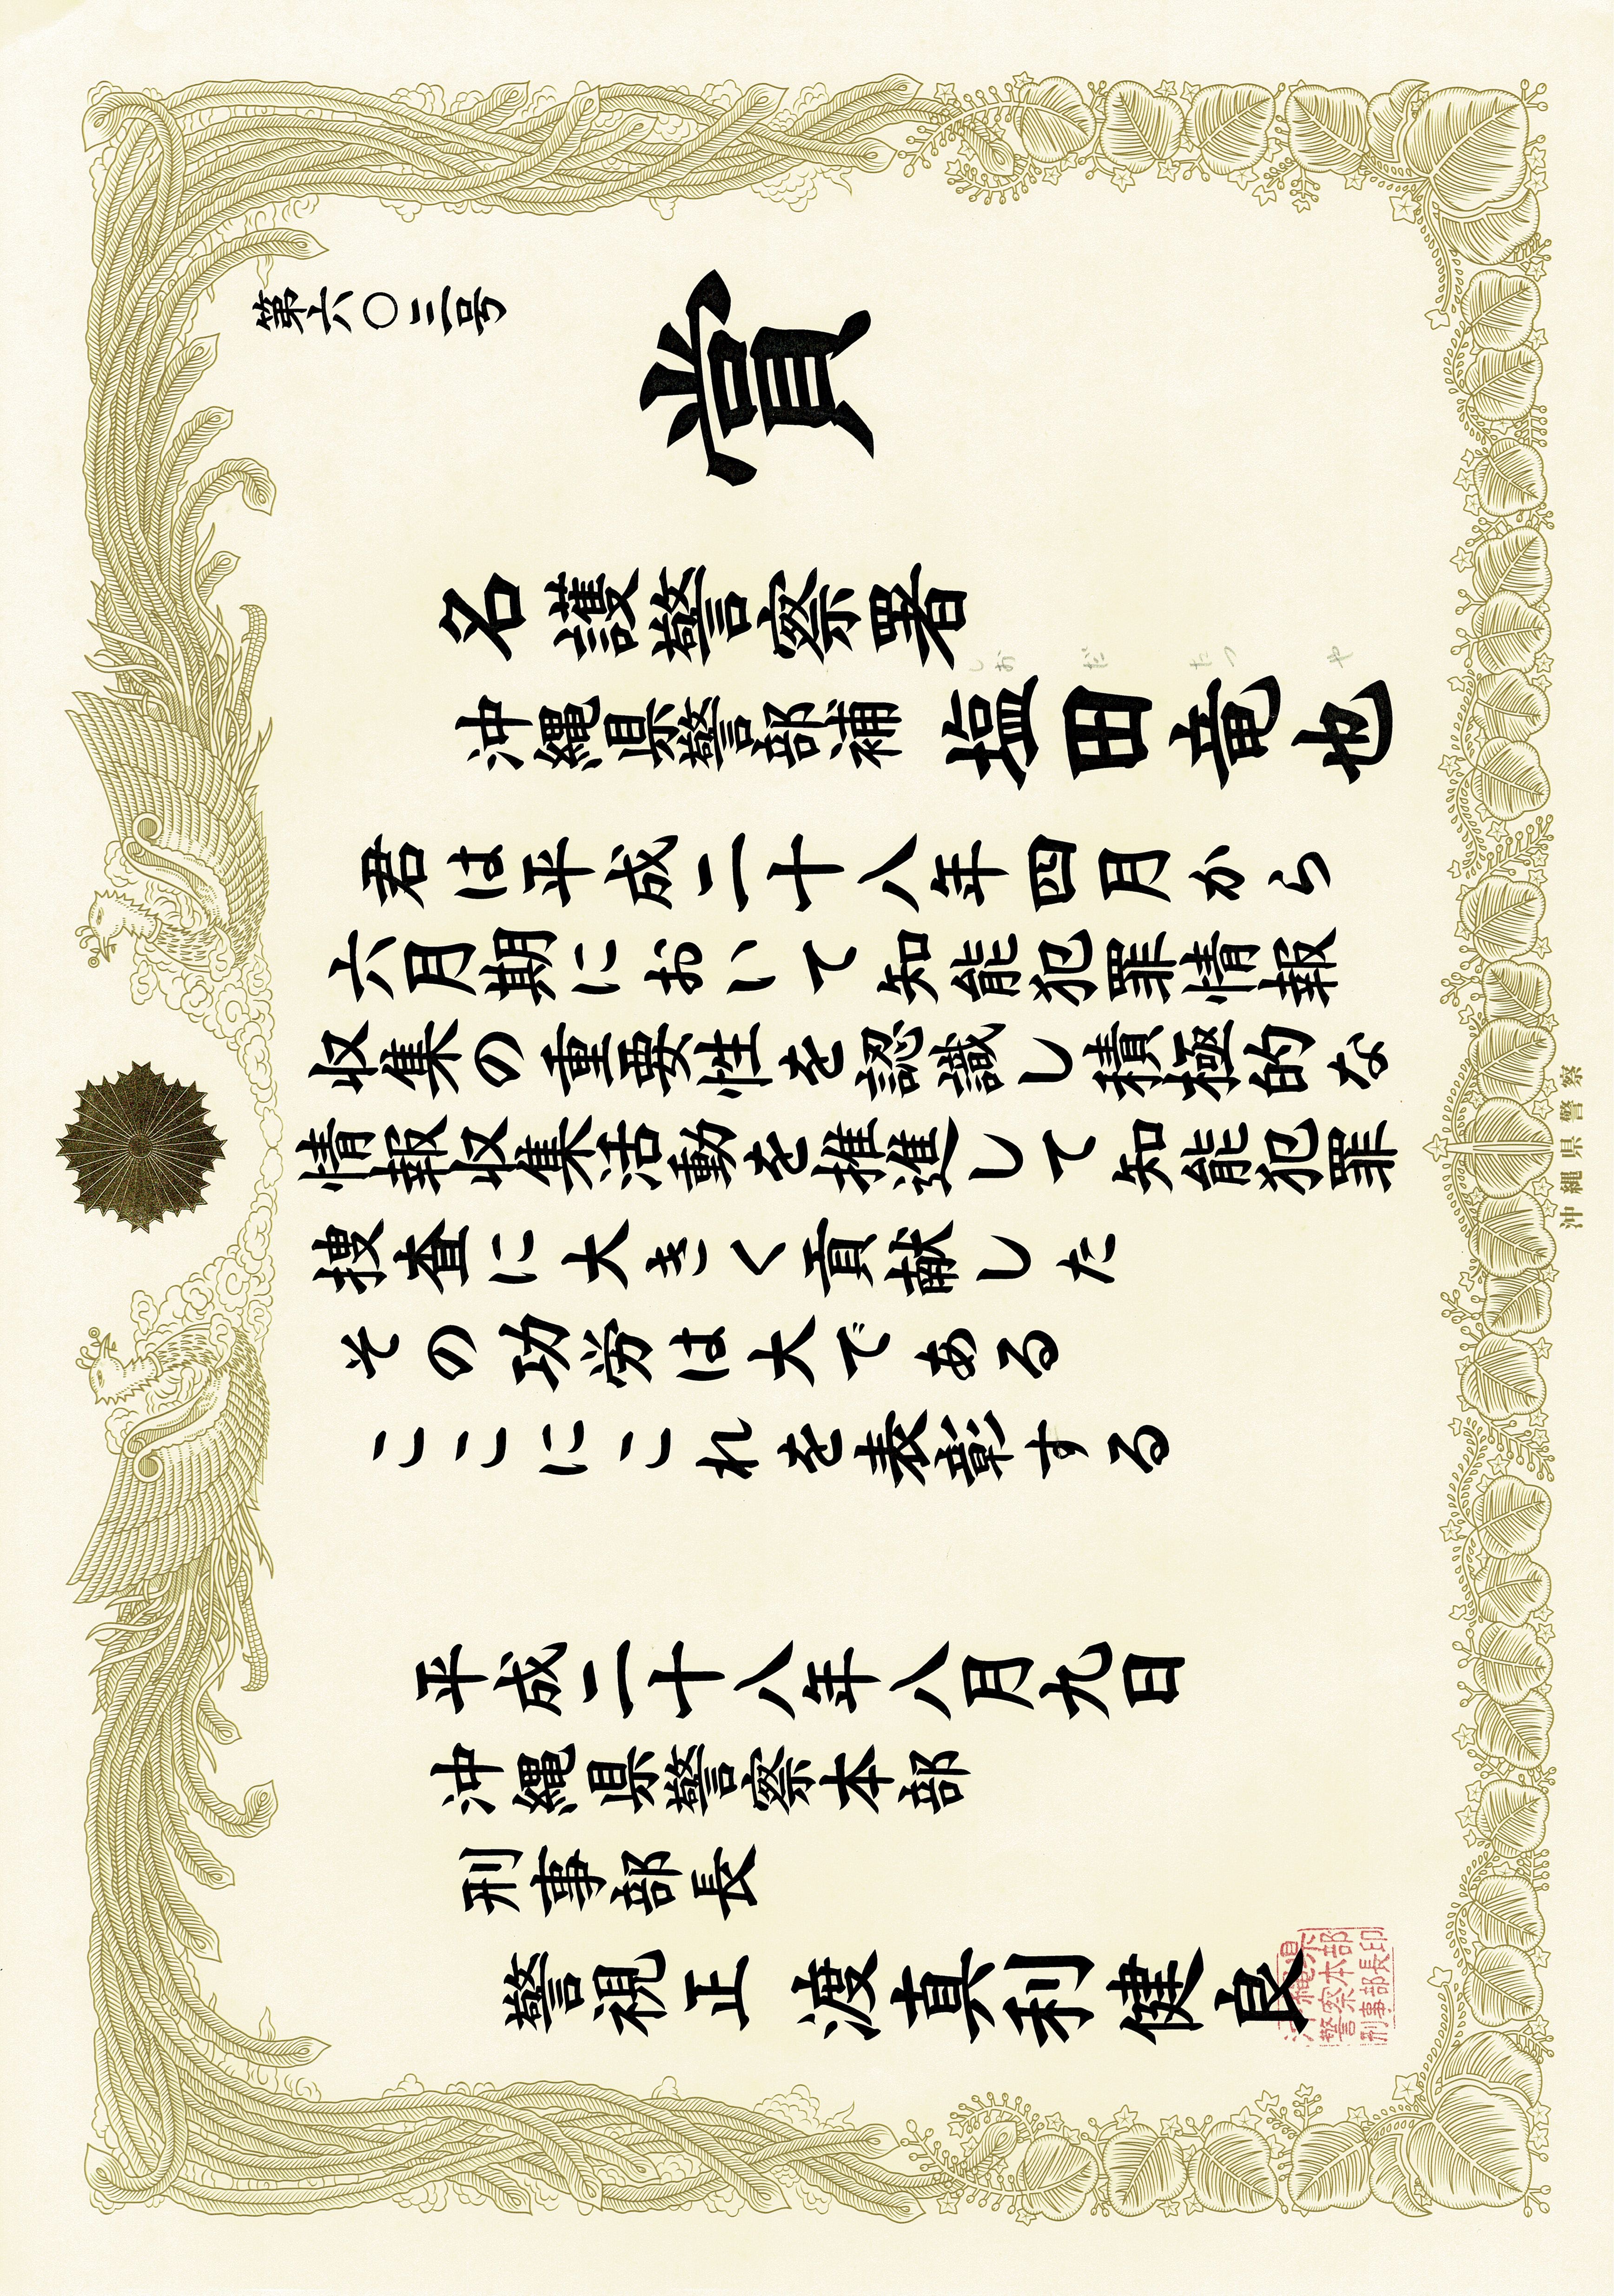 第六〇二号
賞
名護警察署
沖縄県警部補 塩田竜也
しおだたつや
君は平成二十八年四月から
六月期において知能犯罪情報
収集の重要性を認識し積極的な
情報収集活動を推進して知能犯罪
捜査に大きく貢献した
その功労は大である
ここにこれを表彰する
平成二十八年八月九日
沖縄県警察本部
刑事部長
警視正 渡真利健良
沖縄県
警察本部
刑事部長印
沖縄県警察